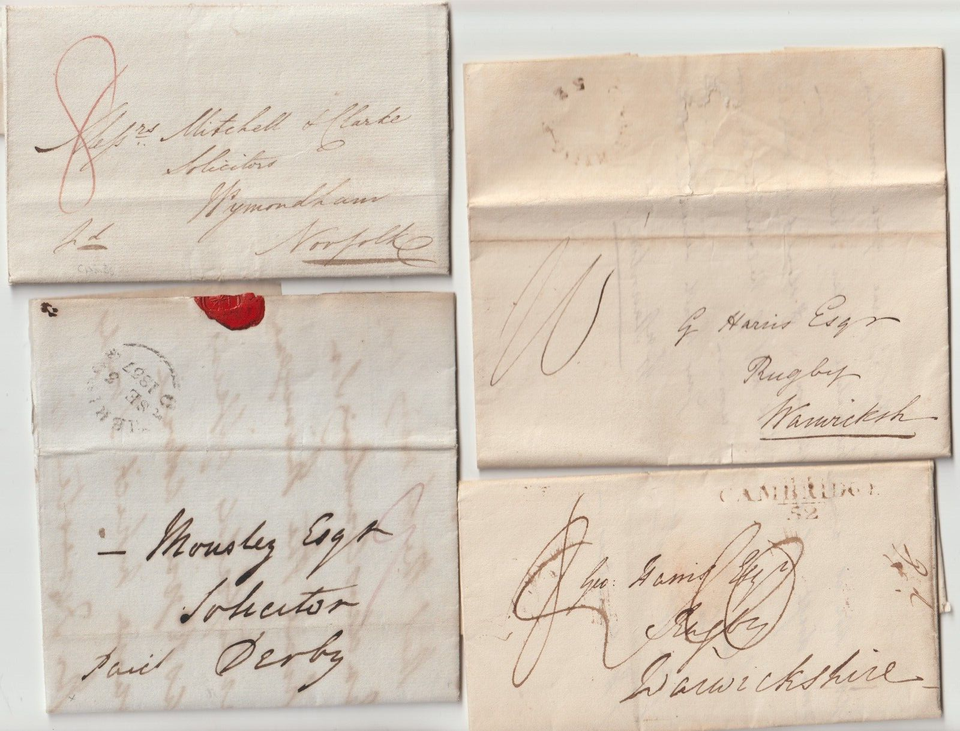 8
Messrs Mitchell & Clarke
Solicitors
Wymondham
Pd
Norfolk
G Harris Esqr
Rugby
Warwicksh
SE 5
1837
— Mousley Esqr
Solicitor
Paid Derby
CAMBRIDGE
52
Geo. Harris Esqr
Rugby
Warwickshire